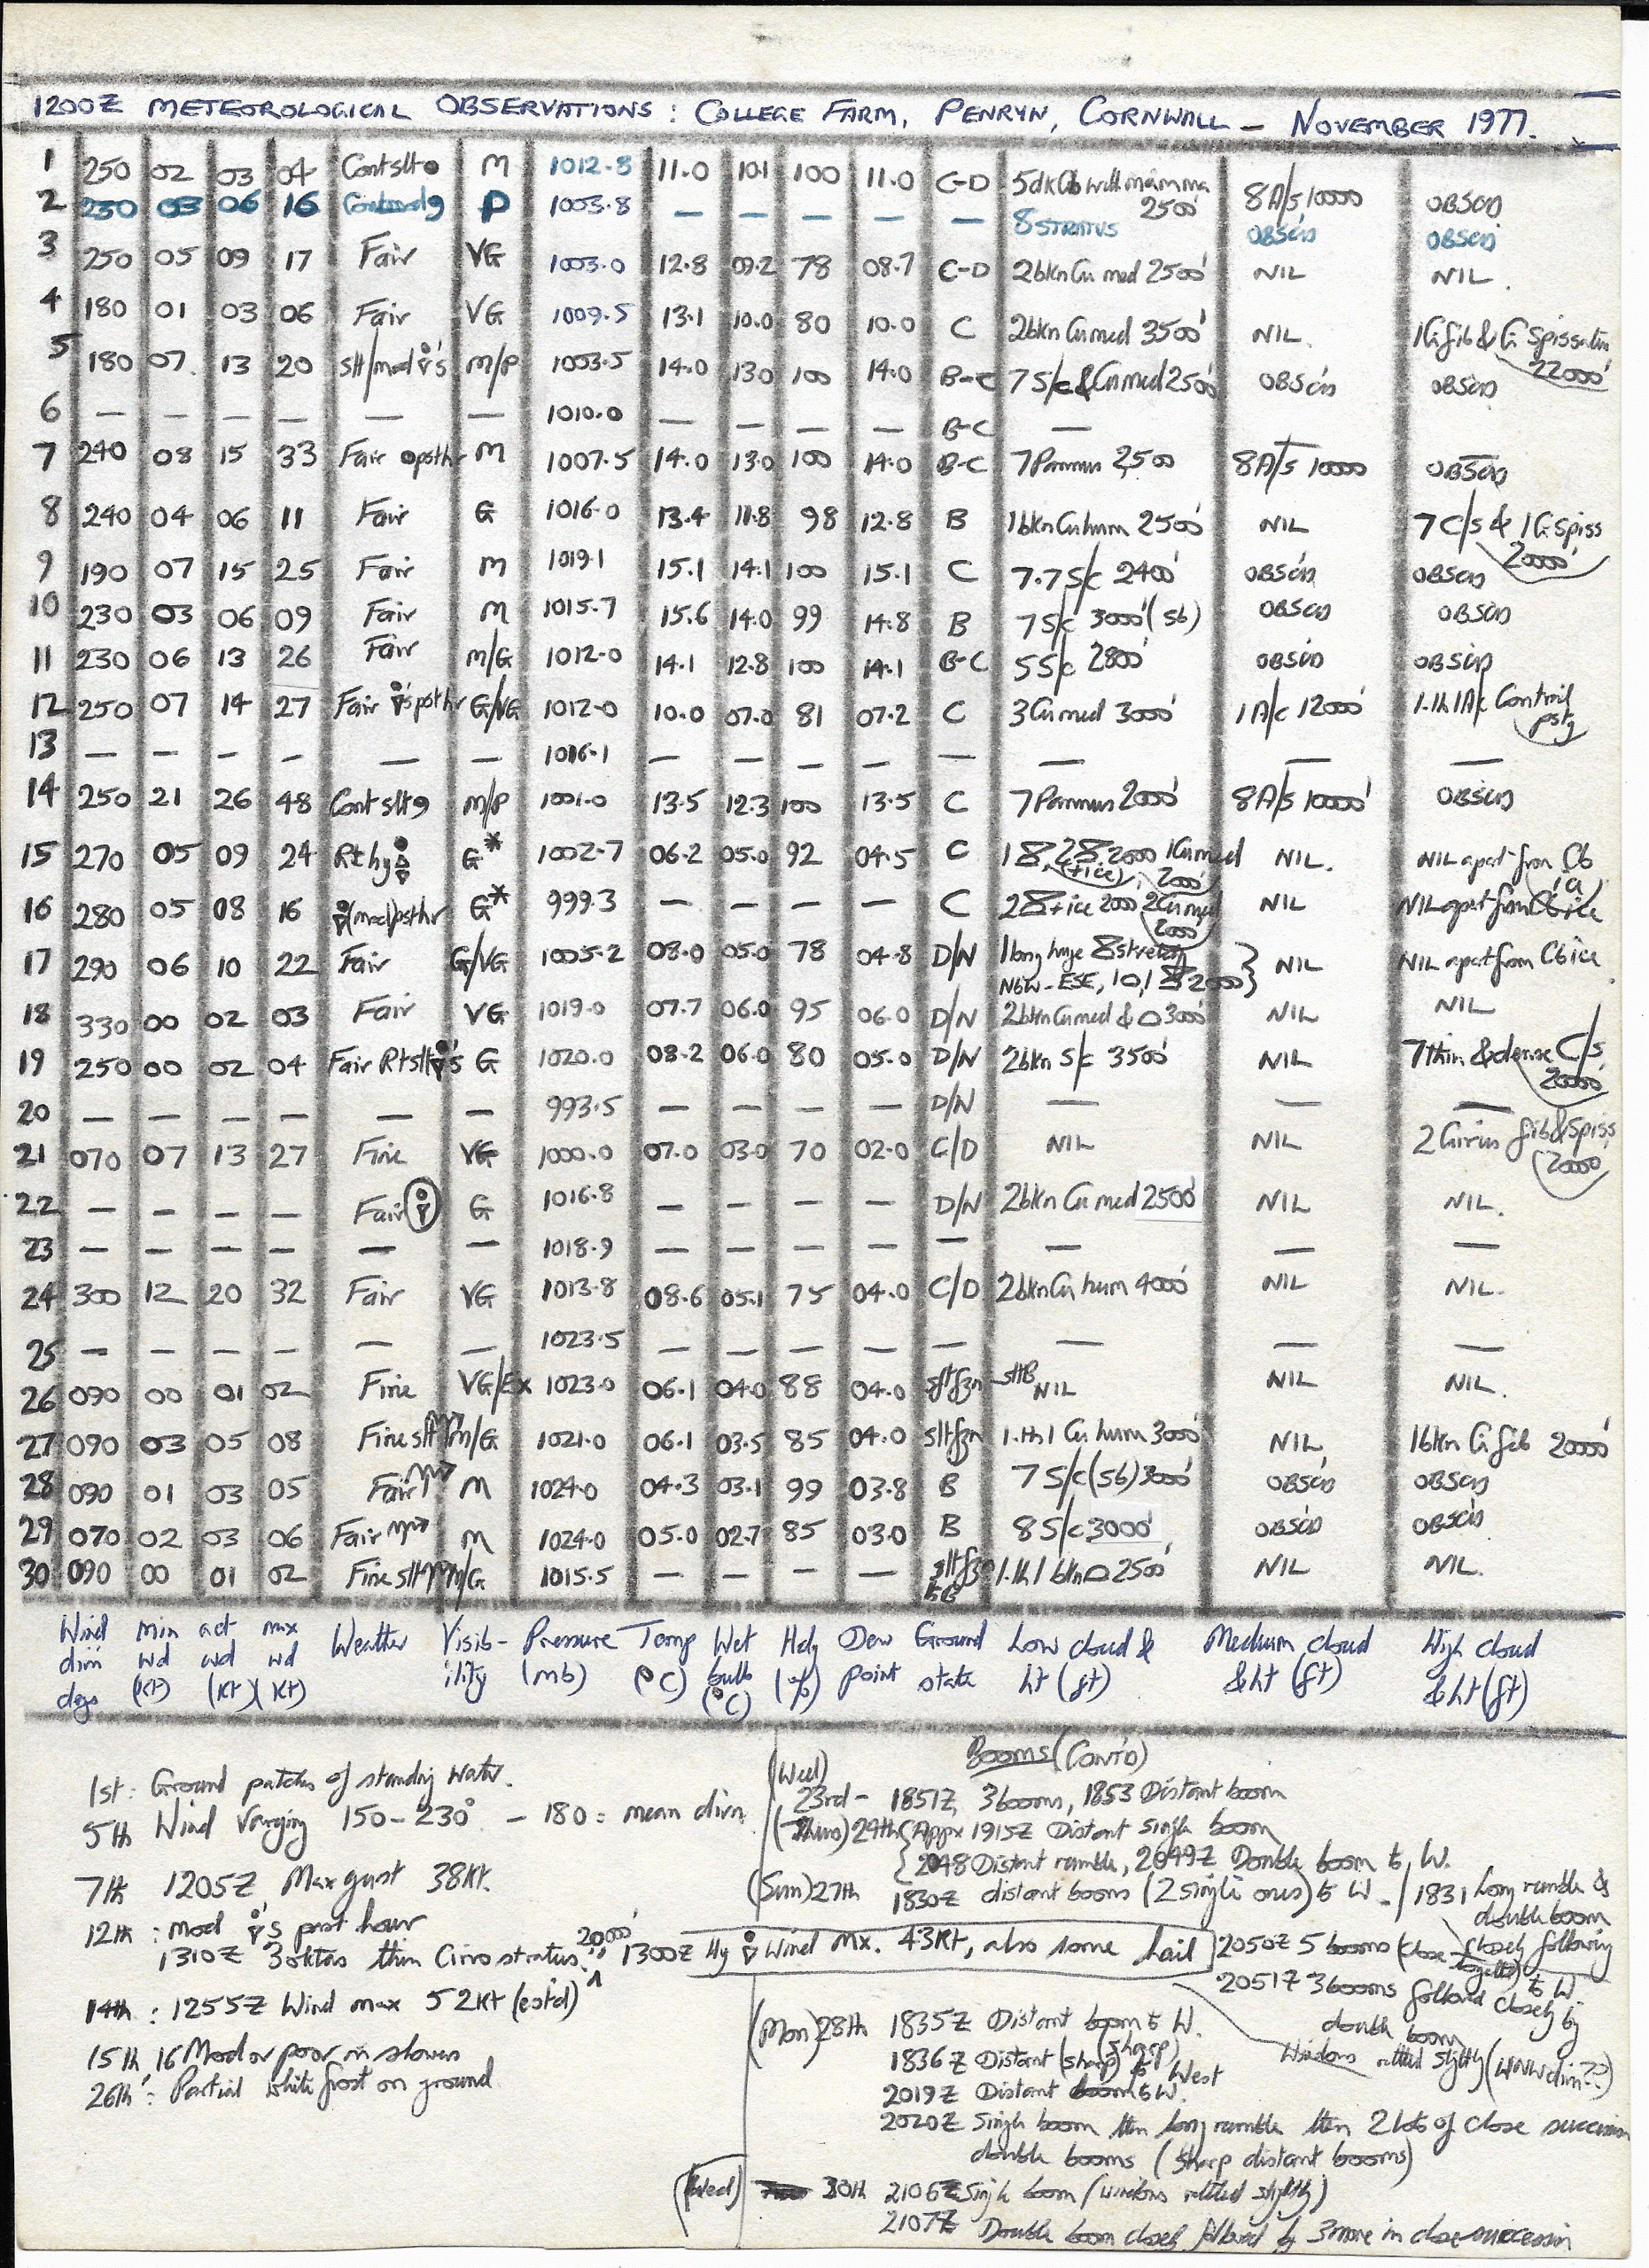 1200Z METEOROLOGICAL OBSERVATIONS : COLLEGE FARM, PENRYN, CORNWALL — NOVEMBER 1977.
1 250 02 03 04 Cont slt M 1012.8 11.0 10.1 100 11.0 C-D 5 dk Cb with mamma 2500' 8 A/s 10000 OBSCD
2 230 03 06 16 P 1003.8 — — — — — 8 STRATUS OBSCD OBSCD
3 250 05 09 17 Fair VG 1003.0 12.8 09.2 78 08.7 C-D 2 bkn Cu med 2500' NIL NIL.
4 180 01 03 06 Fair VG 1009.5 13.1 10.0 80 10.0 C 2 bkn Cu med 3500' NIL. 1 Ci fib & Ci Spissatus 22000'
5 180 07 13 20 slt/mod 's M/P 1003.5 14.0 13.0 100 14.0 B-C 7 S/c & Cu med 2500' OBSCD OBSCD
6 — — — — — — 1010.0 — — — — B-C —
7 240 08 15 33 Fair psthr M 1007.5 14.0 13.0 100 14.0 B-C 7 Pannus 2500 8 A/s 10000 OBSCD
8 240 04 06 11 Fair G 1016.0 13.4 11.8 98 12.8 B 1 bkn Cu hum 2500' NIL 7 C/s & 1 Ci Spiss 20000'
9 190 07 15 25 Fair M 1019.1 15.1 14.1 100 15.1 C 7.7 S/c 2400' OBSCD OBSCD
10 230 03 06 09 Fair M 1015.7 15.6 14.0 99 14.8 B 7 S/c 3000' (s6) OBSCD OBSCD
11 230 06 13 26 Fair M/G 1012.0 14.1 12.8 100 14.1 B-C 5 S/c 2800' OBSCD OBSCD
12 250 07 14 27 Fair 's psthr G/VG 1012.0 10.0 07.0 81 07.2 C 3 Cu med 3000' 1 A/c 12000' 1.th 1 A/c Contrail pstg
13 — — — — — — 1016.1 — — — — — — — —
14 250 21 26 48 Cont slt M/P 1001.0 13.5 12.3 100 13.5 C 7 Pannus 2000' 8 A/s 10000' OBSCD
15 270 05 09 24 Rt hy G* 1002.7 06.2 05.0 92 04.5 C 2000 1 Cu med 2000' NIL. NIL apart from Cb
16 280 05 08 16 (mod) psthr G* 999.3 — — — — C + ice 2000 2 Cu med 2000' NIL NIL apart from Cb ice
17 290 06 10 22 Fair G/VG 1005.2 08.0 05.0 78 04.8 D/N 1 long huge stretch NbW-ESE, 2000 NIL NIL apart from Cb ice
18 330 00 02 03 Fair VG 1019.0 07.7 06.0 95 06.0 D/N 2 bkn Cu med & 3000' NIL NIL
19 250 00 02 04 Fair Rt slt 's G 1020.0 08.2 06.0 80 05.0 D/N 2 bkn S/c 3500' NIL 7 thin & dense C/s 20000'
20 — — — — — — 993.5 — — — — D/N — — —
21 070 07 13 27 Fine VG 1000.0 07.0 03.0 70 02.0 C/D NIL NIL 2 Cirrus fib & Spiss 20000
22 — — — — Fair G 1016.8 — — — — D/N 2 bkn Cu med 2500' NIL NIL.
23 — — — — — — 1018.9 — — — — — — — —
24 300 12 20 32 Fair VG 1013.8 08.6 05.1 75 04.0 C/D 2 bkn Cu hum 4000' NIL NIL.
25 — — — — — 1023.5 — — — — — — — —
26 090 00 01 02 Fine VG/Ex 1023.0 06.1 04.0 88 04.0 slt fzn slt B NIL NIL NIL.
27 090 03 05 08 Fine slt M/G 1021.0 06.1 03.5 85 04.0 slt fzn 1.th 1 Cu hum 3000' NIL 1 bkn Ci fib 20000'
28 090 01 03 05 Fair M 1024.0 04.3 03.1 99 03.8 B 7 S/c (s6) 3000' OBSCD OBSCD
29 070 02 03 06 Fair M 1024.0 05.0 02.7 85 03.0 B 8 S/c 3000' OBSCD OBSCD
30 090 00 01 02 Fine slt M/G 1015.5 — — — — slt fzn 1.th 1 bkn 2500' NIL NIL.
Wind dirn degs min wd (kt) act wd (kt) max wd (kt) Weather Visibility Pressure (mb) Temp (°C) Wet bulb (°C) Hdy (%) Dew point Ground state Low cloud & ht (ft) Medium cloud & ht (ft) High cloud & ht (ft)
1st : Ground patches of standing water.
5th Wind Varying 150-230° - 180 = mean dirn
7th 1205Z Max gust 38Kt.
12th : mod 's past hour
1310Z 3 oktas thin Cirrostratus 20000' 1300Z Hy Wind Mx. 43Kt, also some hail
14th : 1255Z Wind max 52Kt (estd)
15th, 16 Mod or poor in showers
26th : Partial white frost on ground
Booms (CONT'D)
(Wed) 23rd - 1851Z 3 booms, 1853 Distant boom
(Thurs) 24th {Appx 1915Z Distant single boom
{2048 Distant rumble, 2049Z Double boom to W.
(Sun) 27th 1830Z distant booms (2 single ones) to W - / 1831 Long rumble & double boom closely following
2050Z 5 booms (close together) to W.
2051Z 3 booms followed closely by double boom
Windows rattled slightly (WNW dirn??)
(Mon) 28th 1835Z Distant boom to W.
1836Z Distant (sharp) to West
2019Z Distant boom to W.
2020Z Single boom then long rumble then 2 lots of close succession
double booms (sharp distant booms)
(Wed) 30th 2106Z Single boom (windows rattled slightly)
2107Z Double boom closely followed by 3 more in close succession